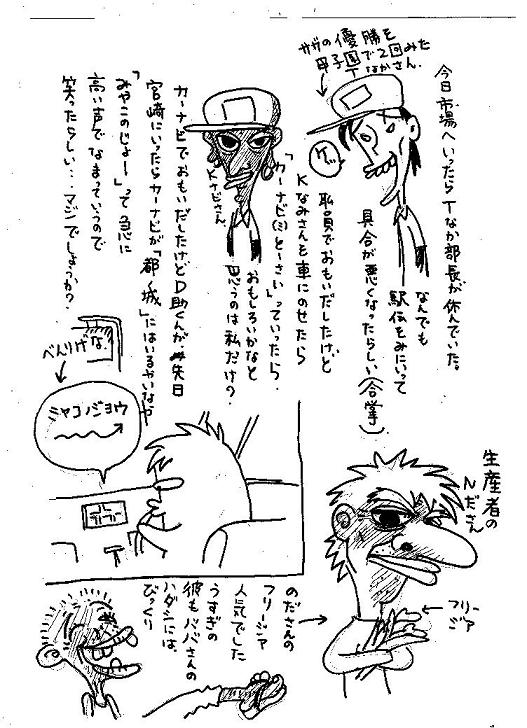 今日市場へいったらTなか部長が休んでいた。
なんでも
駅伝をみにいって
具合が悪くなったらしい(合掌)
サガの優勝を
甲子園で2回みた
Tなかさん。
ケッ
職員でおもいだしたけど
Kなみさんを車にのせたら
「カーナビ(ミ)とーさい」っていったら
おもしろいかなと
思うのは私だけ?
Kナビさん
カーナビでおもいだしたけどD助くんが先日
宮崎にいったらカーナビが「都城」にはいるやいなや
「みやこのじょー」って急に
高い声でなまっていうので
笑ったらしい・・・マジでしょうか?
べんりげな。
ミヤコノジョウ
カーナビ
生産者の
Nださん
フリージア
のださんの
フリージア
人気でした
うすぎの
彼もババさんの
ハダシには、
びっくり